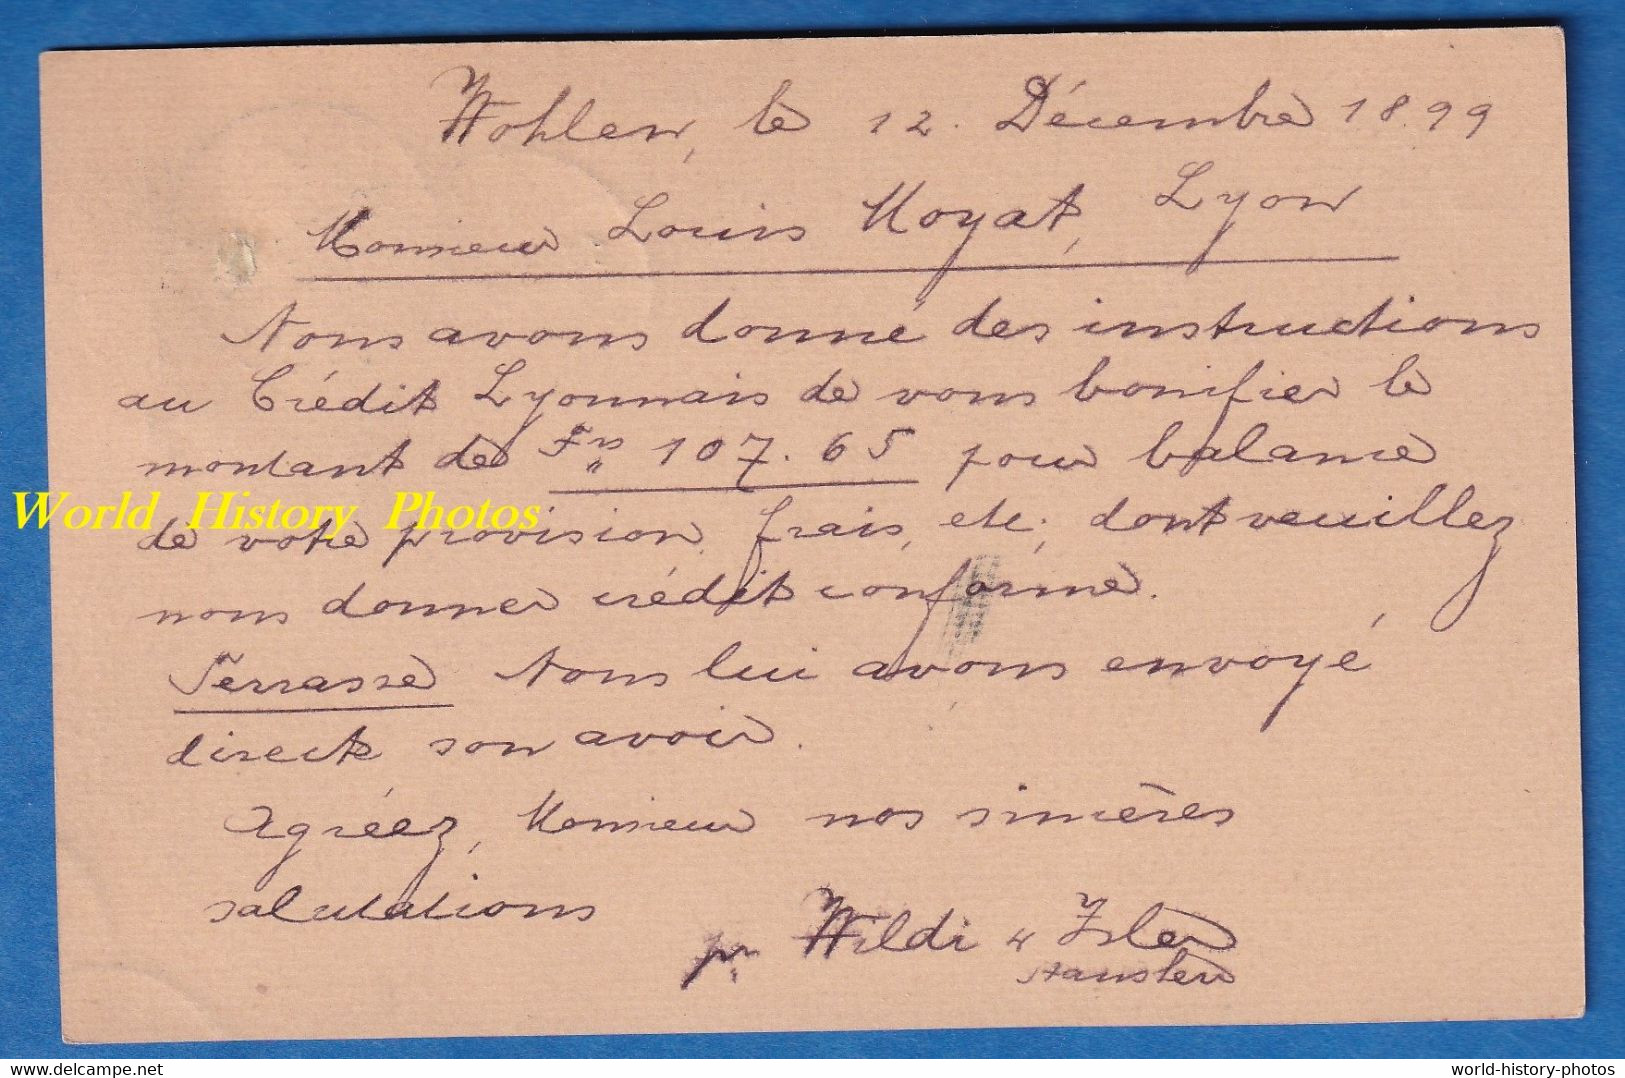 Wohlen, le 12. Décembre 1899
Monsieur Louis Moyat, Lyon
Nous avons donné des instructions
au Crédit Lyonnais de vous bonifier le
montant de Frs 107.65 pour balance
World History Photos
de votre provision, frais, etc; dont veuillez
nous donner crédit conforme.
Terrasse Nous lui avons envoyé
direct son avoir.
Agréez, Monsieur nos sincères
salutations
pr Wildi & Isler
world-history-photos
world-history-photos